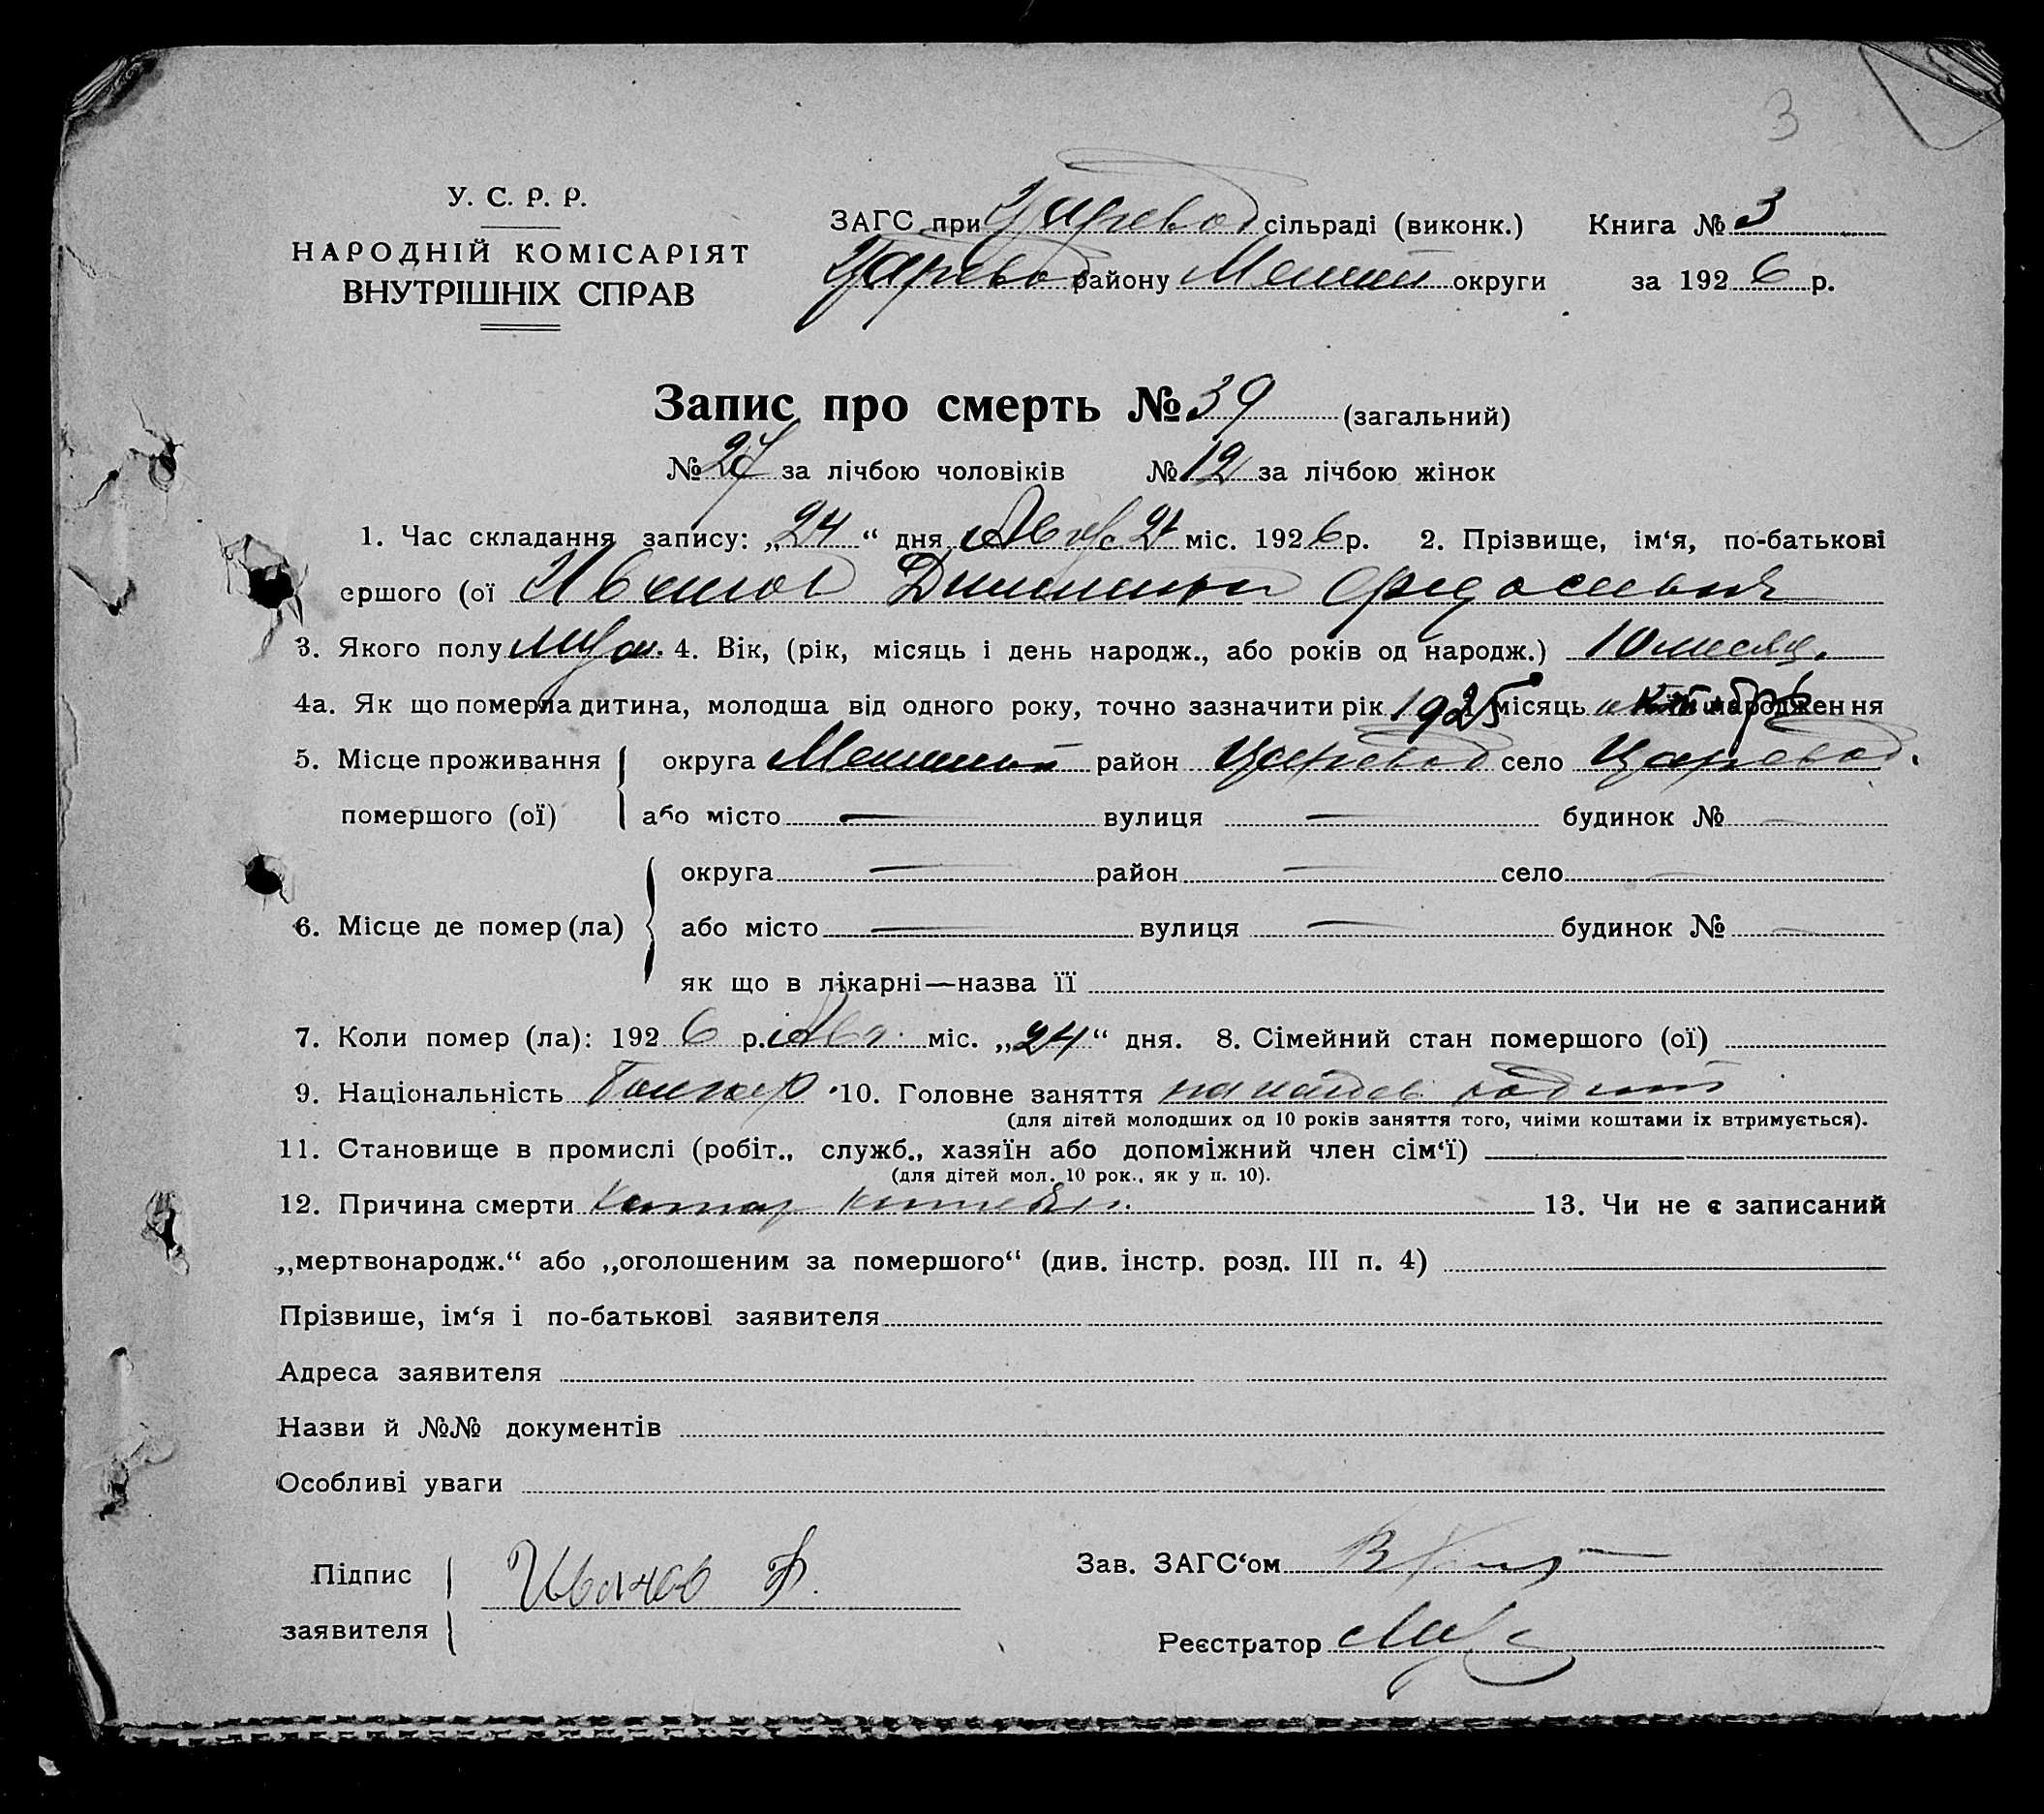 3
У. С. Р. Р.
НАРОДНІЙ КОМІСАРІЯТ
ВНУТРІШНІХ СПРАВ
ЗАГС при Царевод сільраді (виконк.) Книга № 3
Царевод району округи за 1926 р.
Запис про смерть № 39 (загальний)
№ 27 за лічбою чоловіків № 12 за лічбою жінок
1. Час складання запису: „24“ дня міс. 1926 р. 2. Прізвище, ім‘я, по-батькові
ершого (ої Иванов Федосиевич
3. Якого полу муж. 4. Вік, (рік, місяць і день народж., або років од народж.) 10 месяц.
4а. Як що померла дитина, молодша від одного року, точно зазначити рік 1925 місяць народження
5. Місце проживання округа район Царевод село Царевод.
помершого (ої) або місто — вулиця — будинок № —
округа — район — село —
6. Місце де помер (ла) або місто — вулиця — будинок № —
як що в лікарні—назва її
7. Коли помер (ла): 1926 р. Авг. міс. „24“ дня. 8. Сімейний стан помершого (ої)
9. Національність Болгар 10. Головне заняття
(для дітей молодших од 10 років заняття того, чиїми коштами їх втримується).
11. Становище в промислі (робіт., служб., хазяїн або допоміжний член сім‘ї)
(для дітей мол. 10 рок., як у п. 10).
12. Причина смерти Катар 13. Чи не є записаний
„мертвонародж.“ або „оголошеним за помершого“ (див. інстр. розд. III п. 4)
Прізвише, ім‘я і по-батькові заявителя
Адреса заявителя
Назви й №№ документів
Особливі уваги
Підпис заявителя Иванов Ф.
Зав. ЗАГС‘ом
Реєстратор